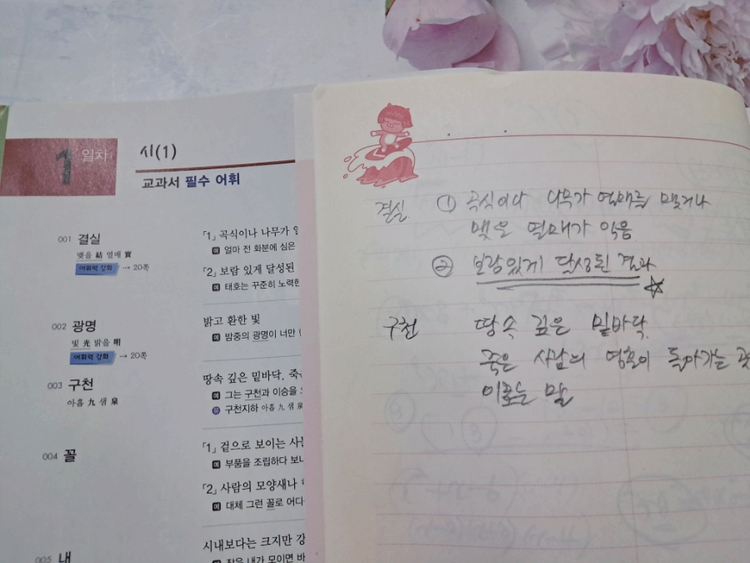 1 일차
시(1)
교과서 필수 어휘
001 결실
맺을 結 열매 實
어휘력 강화 → 20쪽
「1」 곡식이나 나무가
예 얼마 전 화분에 심은
「2」 보람 있게 달성된
예 태호는 꾸준히 노력한
002 광명
빛 光 밝을 明
어휘력 강화 → 20쪽
밝고 환한 빛
예 밤중의 광명이 너만
003 구천
아홉 九 샘 泉
땅속 깊은 밑바닥.
예 그는 구천과 이승을
유 구천지하 아홉 九 샘 泉
004 꼴
「1」 겉으로 보이는
예 부품을 조립하다
「2」 사람의 모양새나
예 대체 그런 꼴로
005 내
시내보다는 크지만
예 작은 내가 모이면
결실 ① 곡식이나 나무가 열매를 맺거나
맺은 열매가 익음
② 보람있게 달성된 결과
구천 땅속 깊은 밑바닥
죽은 사람의 영혼이 돌아가는 곳
이르는 말